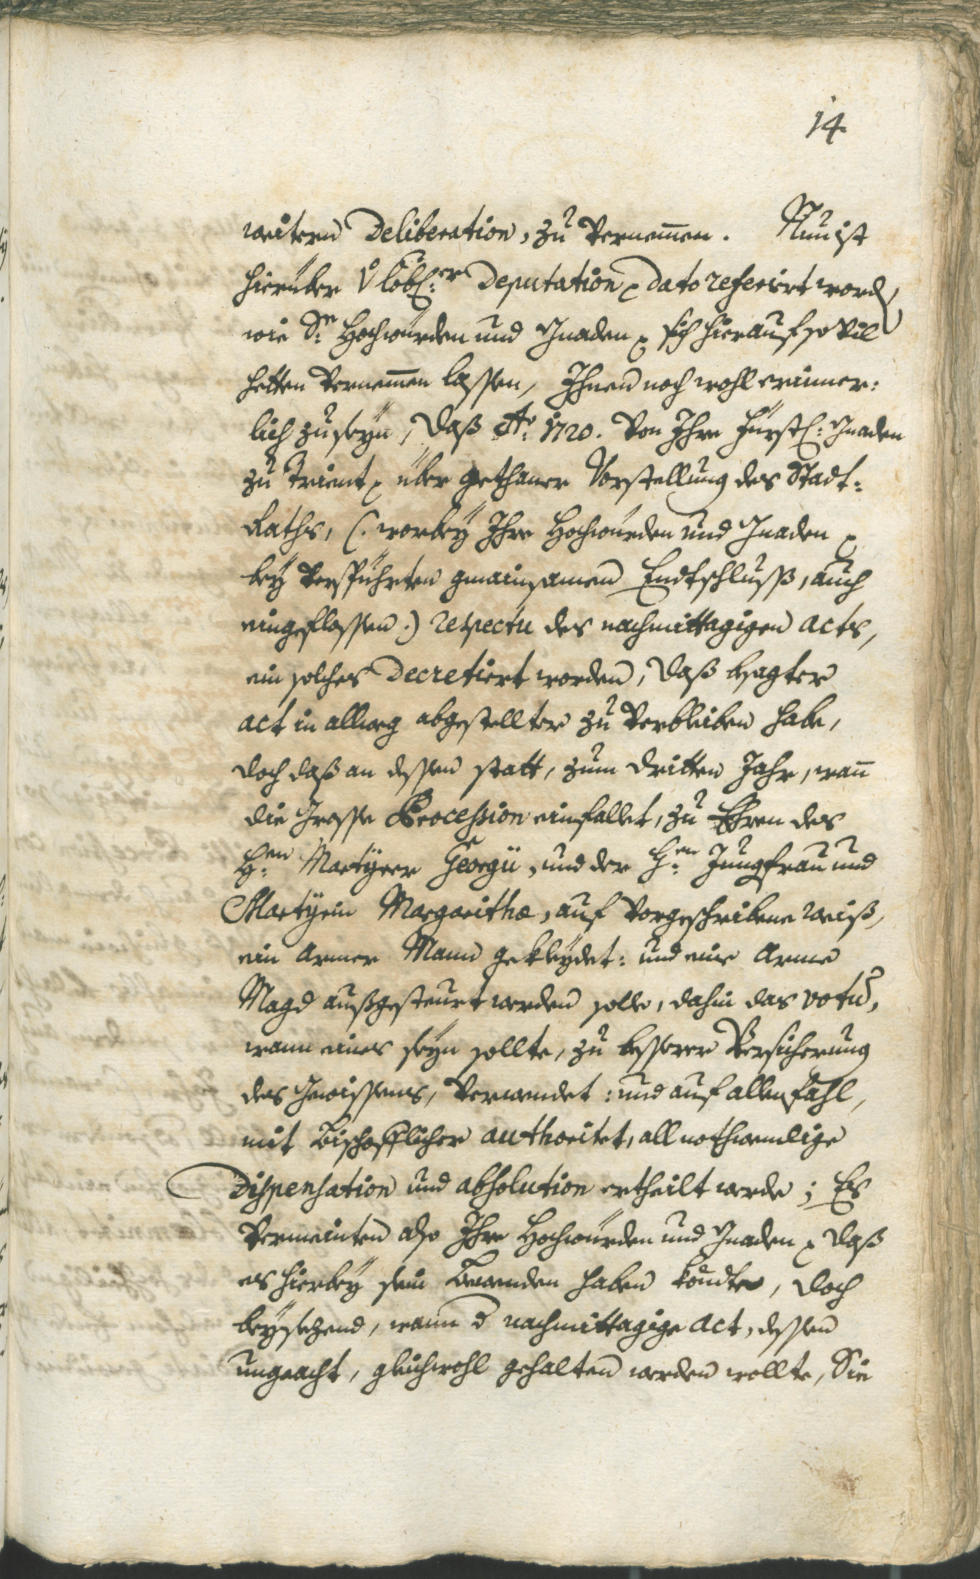 14
weitern Deliberation, zu Vernemmen. Nun ist
hierüber V löbl:er Deputation, dato referiert word
wie Sr Hochwürden und Gnaden sich hierauf so Vil
hetten Vernemmen lassen, Ihnen noch wohl erinner:
lich zuseyn, daß Ao: 1720. Von Ihro Fürstl: Gnaden
zu Trient, über gethaner Vorstellung des Stadt:
Raths, (: worbey Ihro Hochwürden und Gnaden
bey gmainsamen Endtschluß, auch
eingeflossen :) respectu des nachmittagigen acts,
ein solches Decretiert worden, daß besagter
act in allweg abgestellter zu Verbleiben habe,
doch daß an dessen statt, zum dritten Jahr, wann
die Grosse Procession einfallet, zu Ehren des
H:en Martyrer Georgii, und der H:en Jungfrau und
Martyrin Margarithæ, auf Vorgeschribene weiß,
ein Armer Mann gekleydet: und eine Arme
Magd außgesteurt werden solle, dahin das votū,
wann eines seyn sollte, zu besserer Versicherung
des Gewissens, Verwendet: und auf allen fahl,
mit Bischofflicher authoritet, all nothwendige
Dispensation und absolution ertheilt werde; Es
Vermeinten also Ihro Hochwürden und Gnaden daß
es hierbey sein Bewenden haben köndte, doch
beysezend, wann d nachmittagige Act, dessen
ungeacht, gleichwohl gehalten werden wollte, Sie